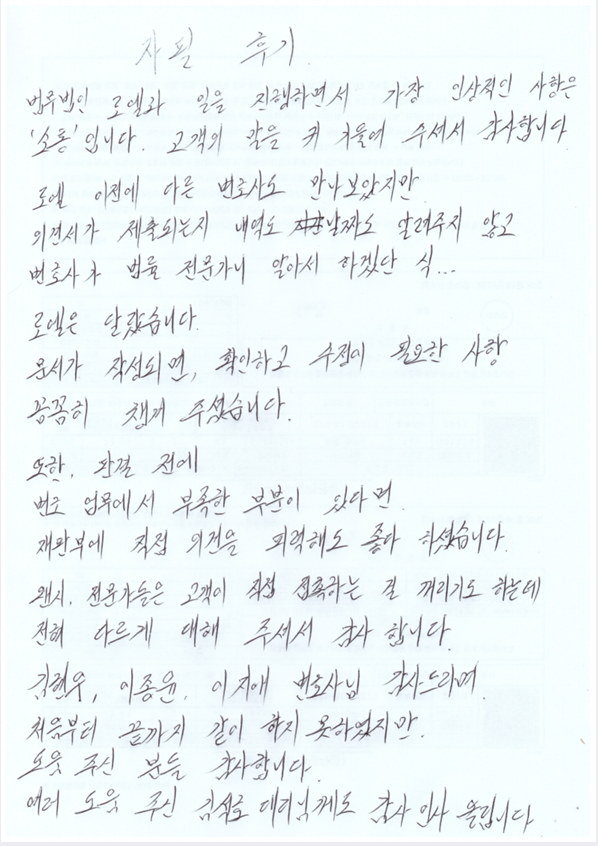 자필 후기.
법률법인 로엘과 일을 진행하면서 가장 인상적인 사항은
'소통'입니다. 고객의 말을 귀 기울여 주셔서 감사합니다
로엘 이전에 다른 변호사도 만나보았지만
의견서가 제출되는지 내역도 날짜도 알려주지 않고
변호사가 법률 전문가니 알아서 하겠단 식...
로엘은 달랐습니다.
문서가 작성되면, 확인하고 수정이 필요한 사항
꼼꼼히 챙겨 주셨습니다.
또한, 판결 전에
변호 업무에서 부족한 부분이 있다면
재판부에 직접 의견을 피력해도 좋다 하셨습니다.
왠지, 전문가들은 고객이 직접 접촉하는 걸 꺼리기도 하는데
전혀 다르게 대해 주셔서 감사 합니다.
김현우, 이종윤, 이지애 변호사님 감사드리며
처음부터 끝까지 같이 하지 못하였지만
도움 주신 분들 감사합니다.
여러 도움 주신 김석로 대리님께도 감사 인사 올립니다